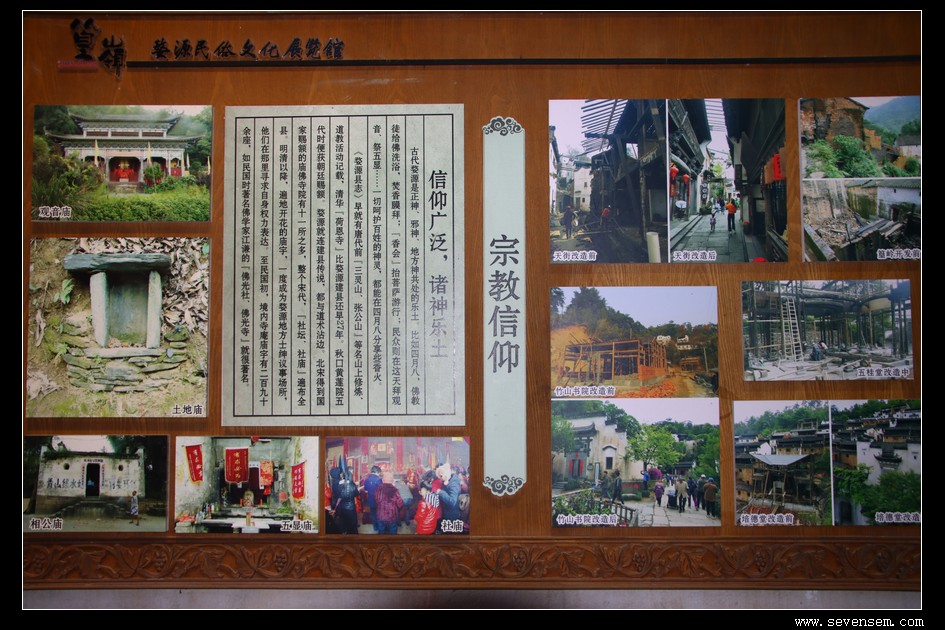 篁嶺 婺源民俗文化展覽館
观音庙
土地庙
相公庙
五显庙
社庙
信仰广泛，诸神乐土
古代婺源是正神、邪神、地方神共处的乐土。比如四月八，佛教
徒给佛洗浴，焚香膜拜；「香会」抬菩萨游行；民众则在这天拜观
音、祭五显……一切呵护百姓的神灵，都能在四月八分享些香火。
《婺源县志》早就有唐代前「三灵山、张公山」等名山上修炼、
道教活动记载，清华「荷恩寺」比婺源建县还早27年，秋口黄莲院五
代时便获朝廷赐额。婺源就连建县传说，都与道术沾边。北宋得到国
家赐额的庙佛寺院有十一所之多，整个宋代，「社坛、社庙」遍布全
县。明清以降，遍地开花的庙宇，一度成为婺源地方士绅议事场所，
他们在那里寻求自身权力表达。至民国初，境内寺庵庙宇有二百九十
余座，如民国时著名佛学家江谦的「佛光社、佛光寺」就很著名。
宗教信仰
天街改造前
天街改造后
篁岭开发前
竹山书院改造前
五桂堂改造中
竹山书院改造后
培德堂改造前
培德堂改造
www.sevensem.com